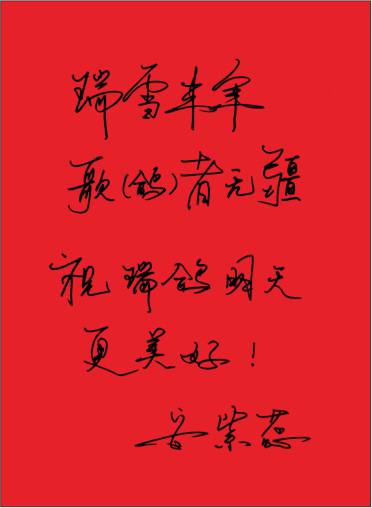 瑞雪丰年
歌(鸽)者无疆
祝瑞鸽明天
更美好！
安紫蕊